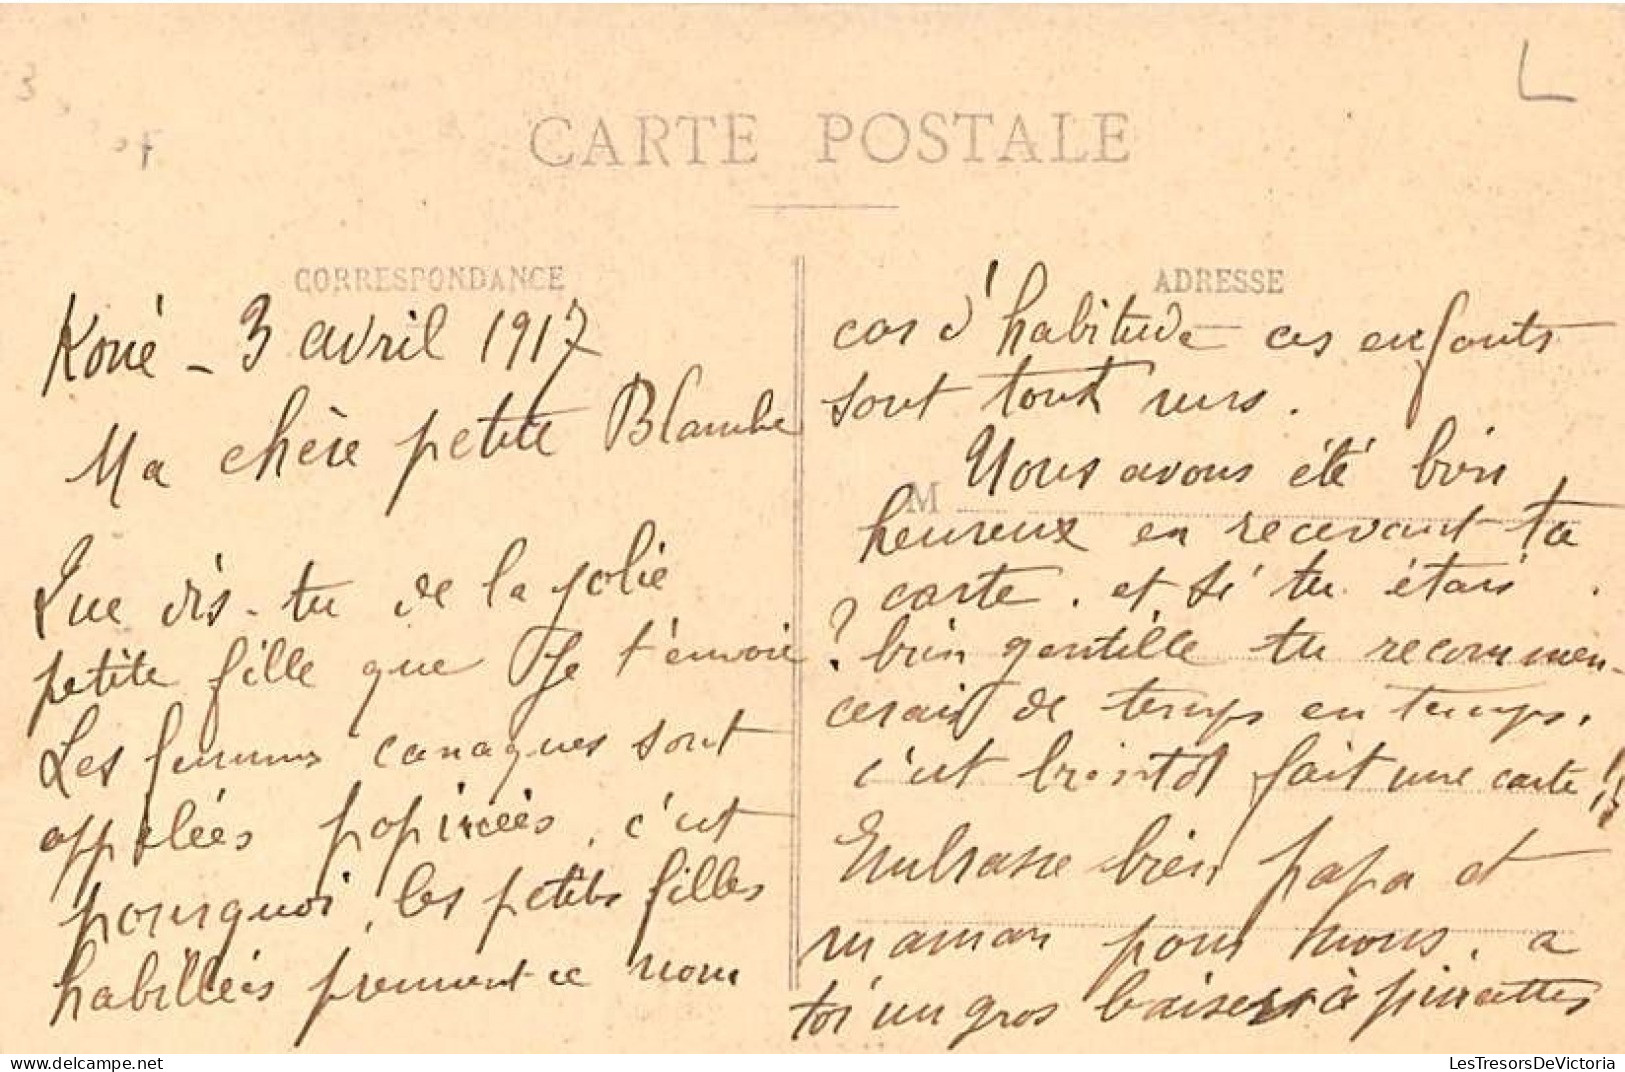 CARTE POSTALE
CORRESPONDANCE
Koné - 3 avril 1917
Ma chère petite Blanche
Que dis-tu de la jolie
petite fille que je t'envoie
Les femmes canaques sont
appelées popinées, c'est
pourquoi, les petites filles
habillées prennent ce nom
ADRESSE
M
car d'habitude ces enfants
sont tout nus.
Nous avons été bien
heureux en recevant ta
carte. et si tu étais
bien gentille tu recommen-
cerais de temps en temps.
c'est bientôt fait une carte!!
Embrasse bien papa et
maman pour nous. a
toi un gros baiser à pincettes
LesTresorsDeVictoria